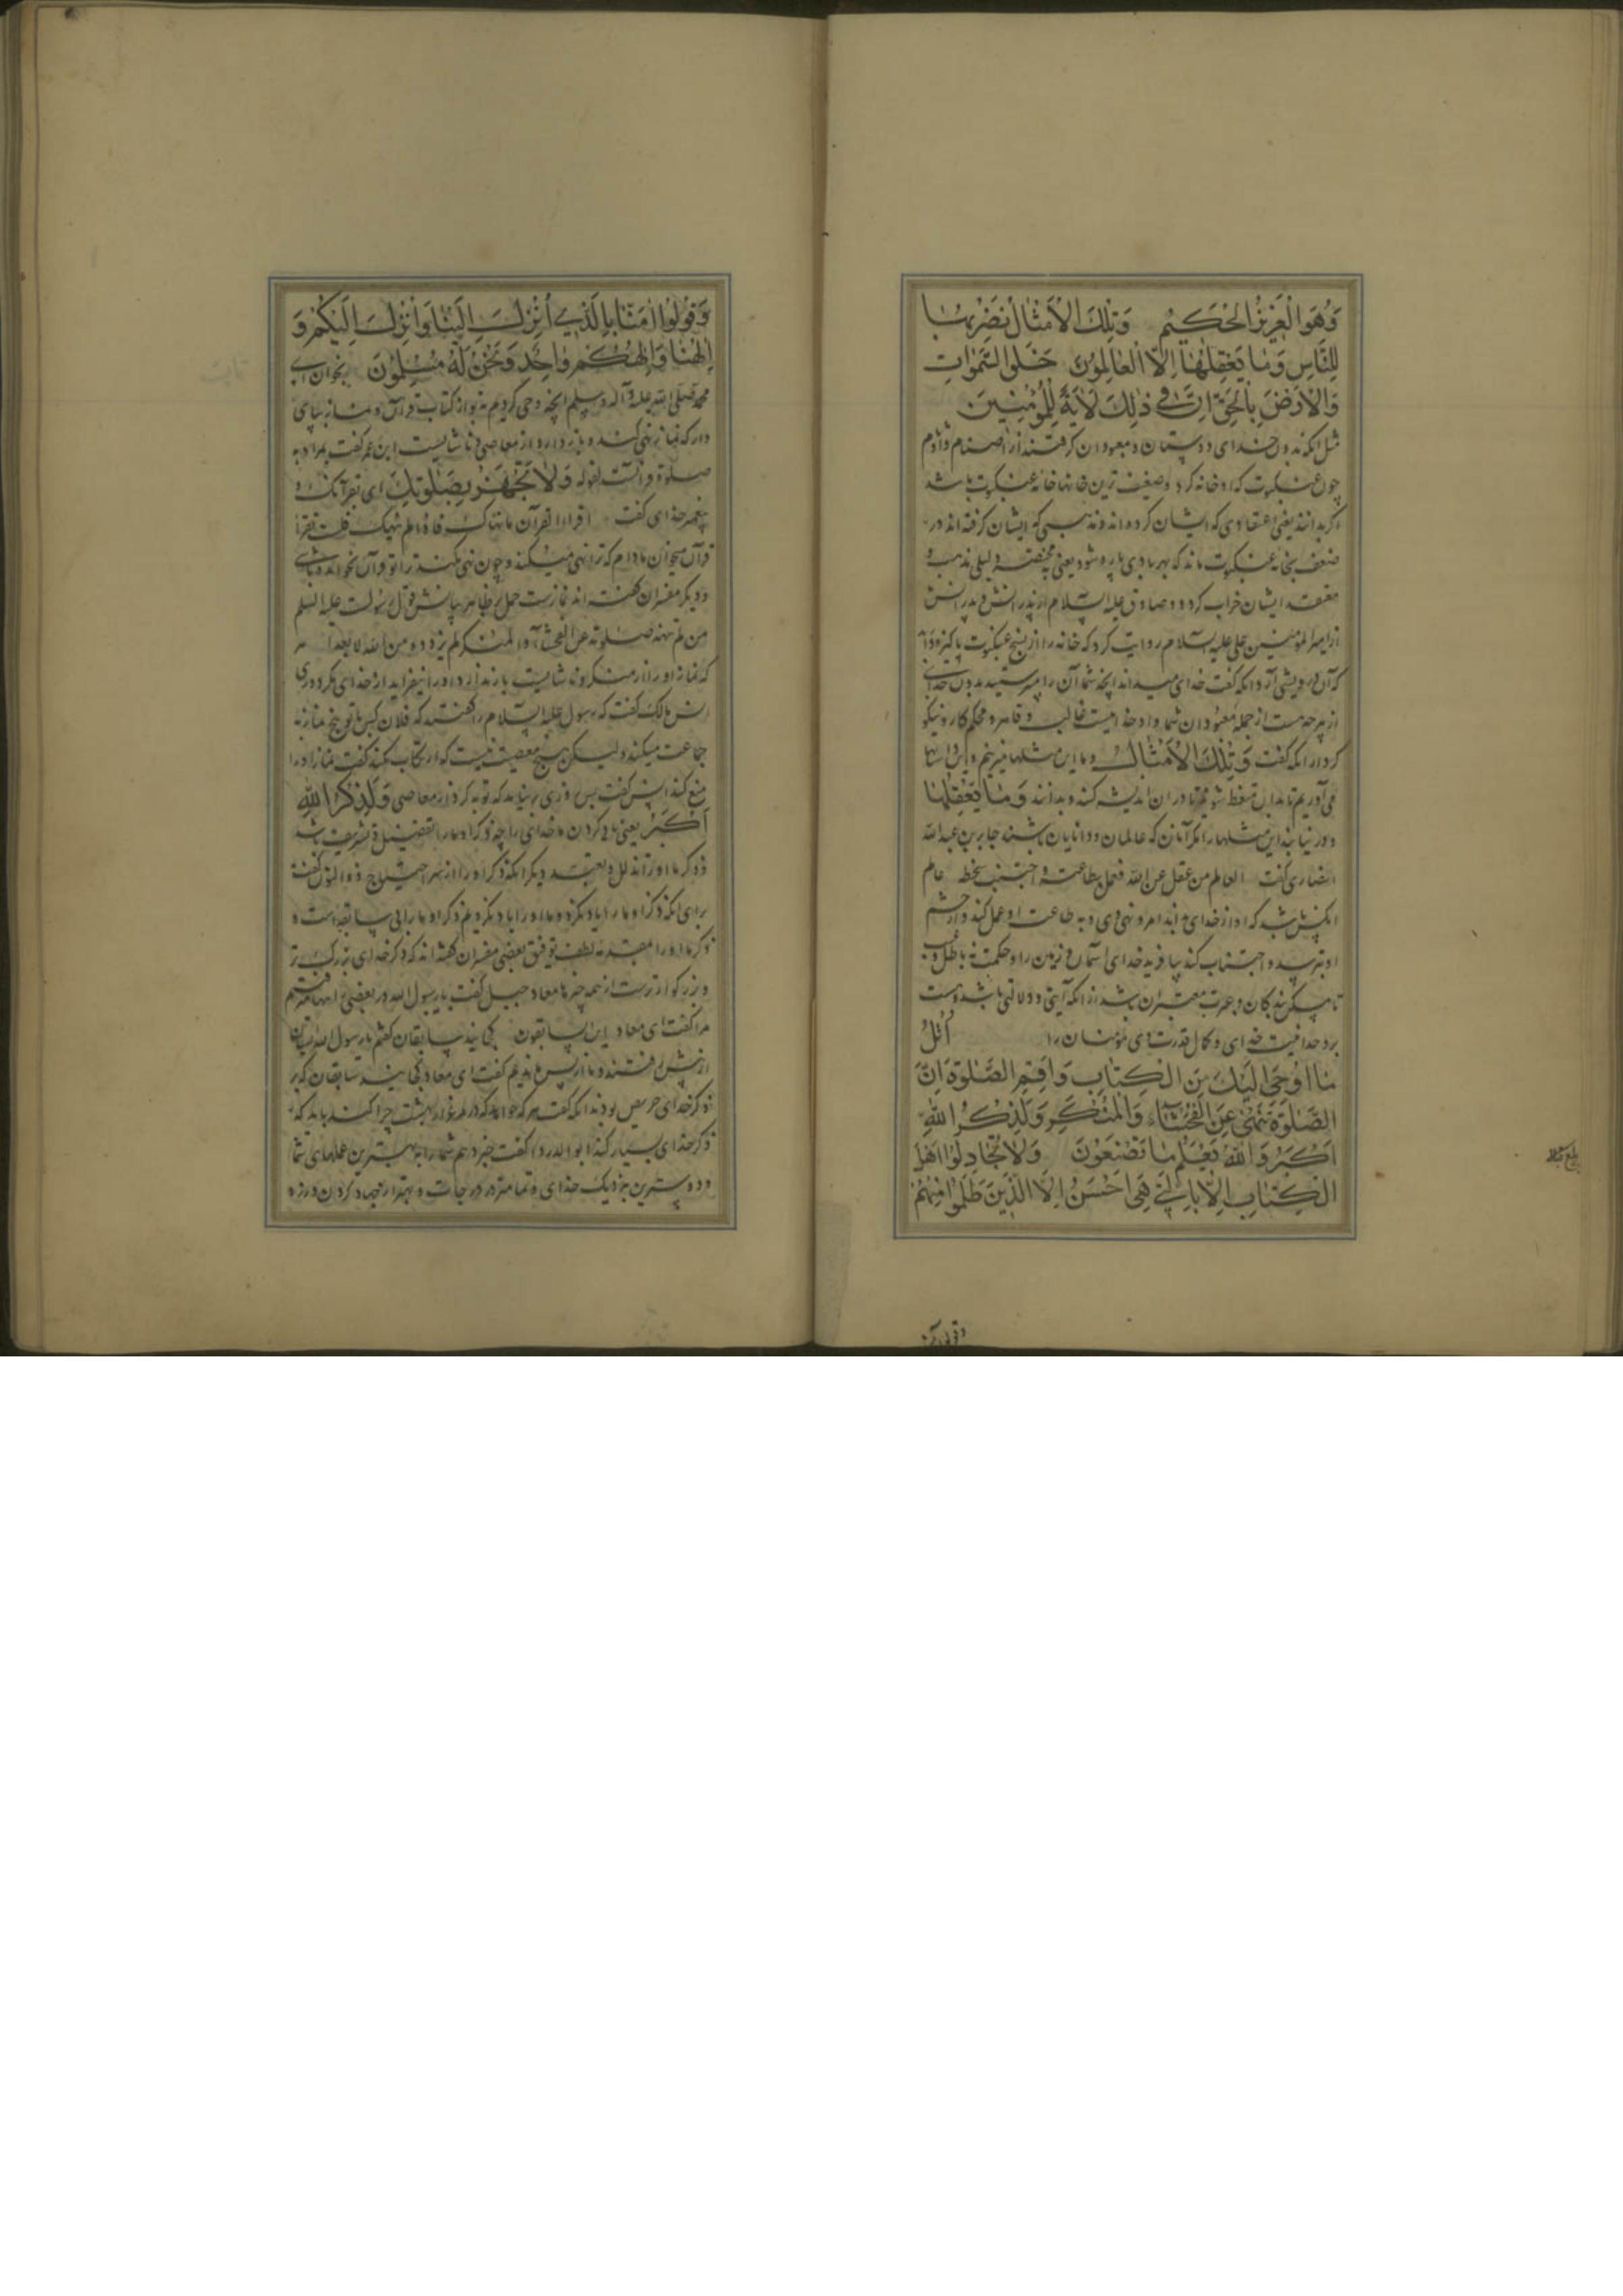 وَهُوَ الْعَزِيزُ الْحَكِيمُ وَتِلْكَ الْاَمْثَالُ نَضْرِبُهَا
لِلنَّاسِ وَمَا يَعْقِلُهَا اِلَّا الْعَالِمُونَ خَلَقَ السَّمٰوَاتِ
وَالْاَرْضَ بِالْحَقِّ اِنَّ فِي ذٰلِكَ لَاٰيَةً لِلْمُؤْمِنِينَ
مثل آنکه بدون خدای دوستان و معبودان گرفتند از اصنام و
چون عنکبوت که او خانه کرد و ضعیف ترین خانها خانه عنکبوت باشد
اگر بدانند یعنی اعتقادی که ایشان کرده‌اند و مذهبی که ایشان گرفته‌اند در
ضعف بخانه عنکبوت ماند که بهر بادی پاره شود یعنی دلیلی مذهب و
معتقد ایشان خراب کردد و صادق علیه السلام از پدرانش
از امیر المؤمنین علی علیه السلام روایت کرد که خانه را از نسج عنکبوت پاکیزه
که آن درویشی آرد آنکه گفت خدای میداند آنچه شما آن را میپرستید بدون خدای
از هر چه هست از جمله معبودان شما و او خدائیست غالب و قاهر و محکم کار و نیکو
کردار آنکه گفت وَتِلْكَ الْاَمْثَالُ و ما این مثلها میزنیم و
می‌آوریم تا بدان متعظ شوند تا در ان اندیشه کنند و بدانند وَمَا يَعْقِلُهَا
و در نیابند این مثلها را مگر آنان که عالمان و دانایان باشند جابر بن عبد الله
انصاری گفت العالم من عقل عن الله فعمل بطاعته و اجتنب سخطه عالم
آنکس باشد که او از خدای بداند امر و نهی وی و به طاعت او عمل کند و از خشم
او بترسد و اجتناب کند بیافرید خدای آسمان و زمین را و حکمت نه باطل و
تا مسکن بندکان و عبرت معتبران باشد از آنکه آیتی و دلالتی باشد
بر وحدانیت خدای و کمال قدرت وی مؤمنان را اُتْلُ
مَا اُوحِيَ اِلَيْكَ مِنَ الْكِتَابِ وَاَقِمِ الصَّلٰوةَ اِنَّ
الصَّلٰوةَ تَنْهٰى عَنِ الْفَحْشَآءِ وَالْمُنْكَرِ وَلَذِكْرُ اللهِ
اَكْبَرُ وَاللهُ يَعْلَمُ مَا تَصْنَعُونَ وَلَا تُجَادِلُوا اَهْلَ
الْكِتَابِ اِلَّا بِالَّتِي هِيَ اَحْسَنُ اِلَّا الَّذِينَ ظَلَمُوا مِنْهُمْ
وَقُولُوا اٰمَنَّا بِالَّذِي اُنْزِلَ اِلَيْنَا وَاُنْزِلَ اِلَيْكُمْ وَ
اِلٰهُنَا وَاِلٰهُكُمْ وَاحِدٌ وَنَحْنُ لَهُ مُسْلِمُونَ بخوان ای
محمد صلی الله علیه و آله و سلم آنچه وحی کردیم به تو از کتاب قرآن و نماز بپای
دار که نماز نهی کند و باز دارد از معاصی و ناشایست ابن عمر گفت مراد به
صلوة قرآنست لقوله وَلَا تَجْهَرْ بِصَلٰوتِكَ ای بقرآنک و
پیغمبر خدای گفت اقراء القرآن ما نهاک فاذا لم ینهک فلست تقرأ
قرآن میخوان مادام که ترا نهی میکند و چون نهی نکند ترا تو قرآن نخوانده باشی
و دیگر مفسران گفته‌اند نمازست حمل بر ظاهر بیانش قول رسولست علیه السلام
من لم تنهه صلوته عن الفحشاء و المنکر لم یزدد من الله الا بعدا هر
که نماز او را از منکر و ناشایست باز ندارد او را نیفزاید از خدای مگر دوری
انس مالک گفت که رسول علیه السلام را گفتند که فلان کس پنج نماز به
جماعت میکند ولیکن هیچ معصیت نیست که ارتکاب نکند گفت نماز او را
منع کند انس گفت بس روزی برنیامد که توبه کرد از معاصی وَلَذِكْرُ اللهِ
اَكْبَرُ یعنی یاد کردن ما خدای را چه ذکر او ما را تفضیل و تشریف باشد
ذکر ما او را تذلل و تعبد دیگر آنکه ذکر او را از سر احتیاج ذو النون گفت
برای آنکه ذکر او ما را یاد نکردی ما او را یاد نکردیم ذکر او ما را بی سابقه است و
ذکر ما او را لطف توفیق بعضی مفسران گفته‌اند که ذکر خدای بزرگ تر
و بزرگوارترست از همه چیزها معاد جبل گفت با رسول الله در بعضی راهها میرفتیم
مرا گفت ای معاد این السابقون کجایند سابقان گفتم یا رسول الله
از پیش رفتند و ما از پس ماندیم گفت ای معاد کجایند سابقان که بر
ذکر خدای حریص بودند آنکه گفت هر که خواهد که در مرغزار بهشت چرا کند باید که
ذکر خدای بسیار کند ابو الدردا گفت خبر دهم شما را به بهترین عملهای شما
و دوست‌ترین بنزدیک خدای و تمامتر در درجات و بهتر از جهاد کردن و